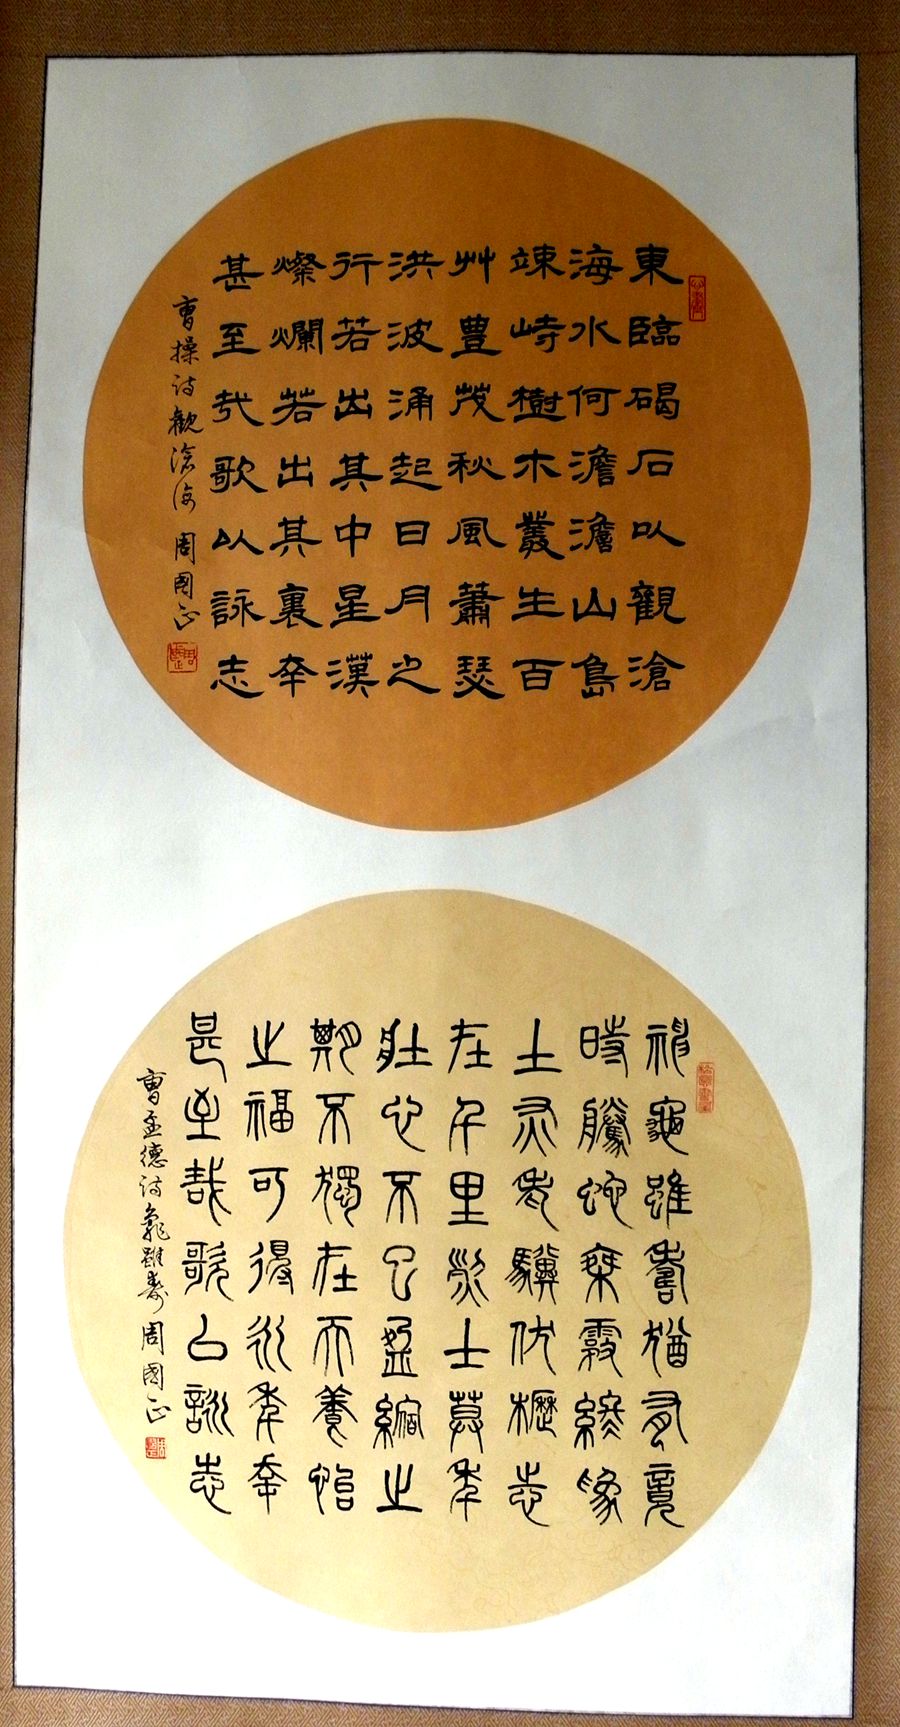 東臨碣石以觀滄
海水何澹澹山島
竦峙樹木叢生百
艸豊茂秋風蕭瑟
洪波涌起日月之
行若出其中星漢
燦爛若出其裏幸
甚至哉歌以詠志
曹操詩觀滄海 周國正
神龜雖壽猶有竟
時騰蛇乘霧終為
土灰老驥伏櫪志
在千里烈士莫年
壯心不已盈縮之
期不獨在天養怡
之福可得永年幸
甚至哉歌以詠志
曹孟德詩龜雖壽 周國正